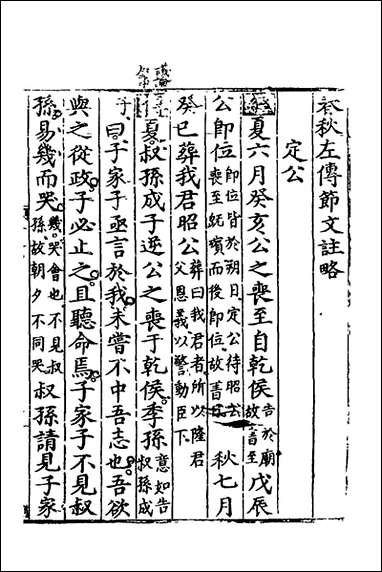 春秋左傳節文註略
定公
經夏六月癸亥公之喪至自乾侯告於廟故書至戊辰
公即位即位皆於朔日定公待昭公喪至既殯而後即位故書日秋七月
癸巳葬我君昭公葬曰我君者所以隆君父恩義以警動臣下
夏叔孫成子逆公之喪于乾侯季孫意如告叔孫成
子曰子家子亟言於我未嘗不中吾志也吾欲
與之從政子必止之且聽命焉子家子不見叔
孫易幾而哭幾哭會也不見叔孫故朝夕不同哭叔孫請見子家